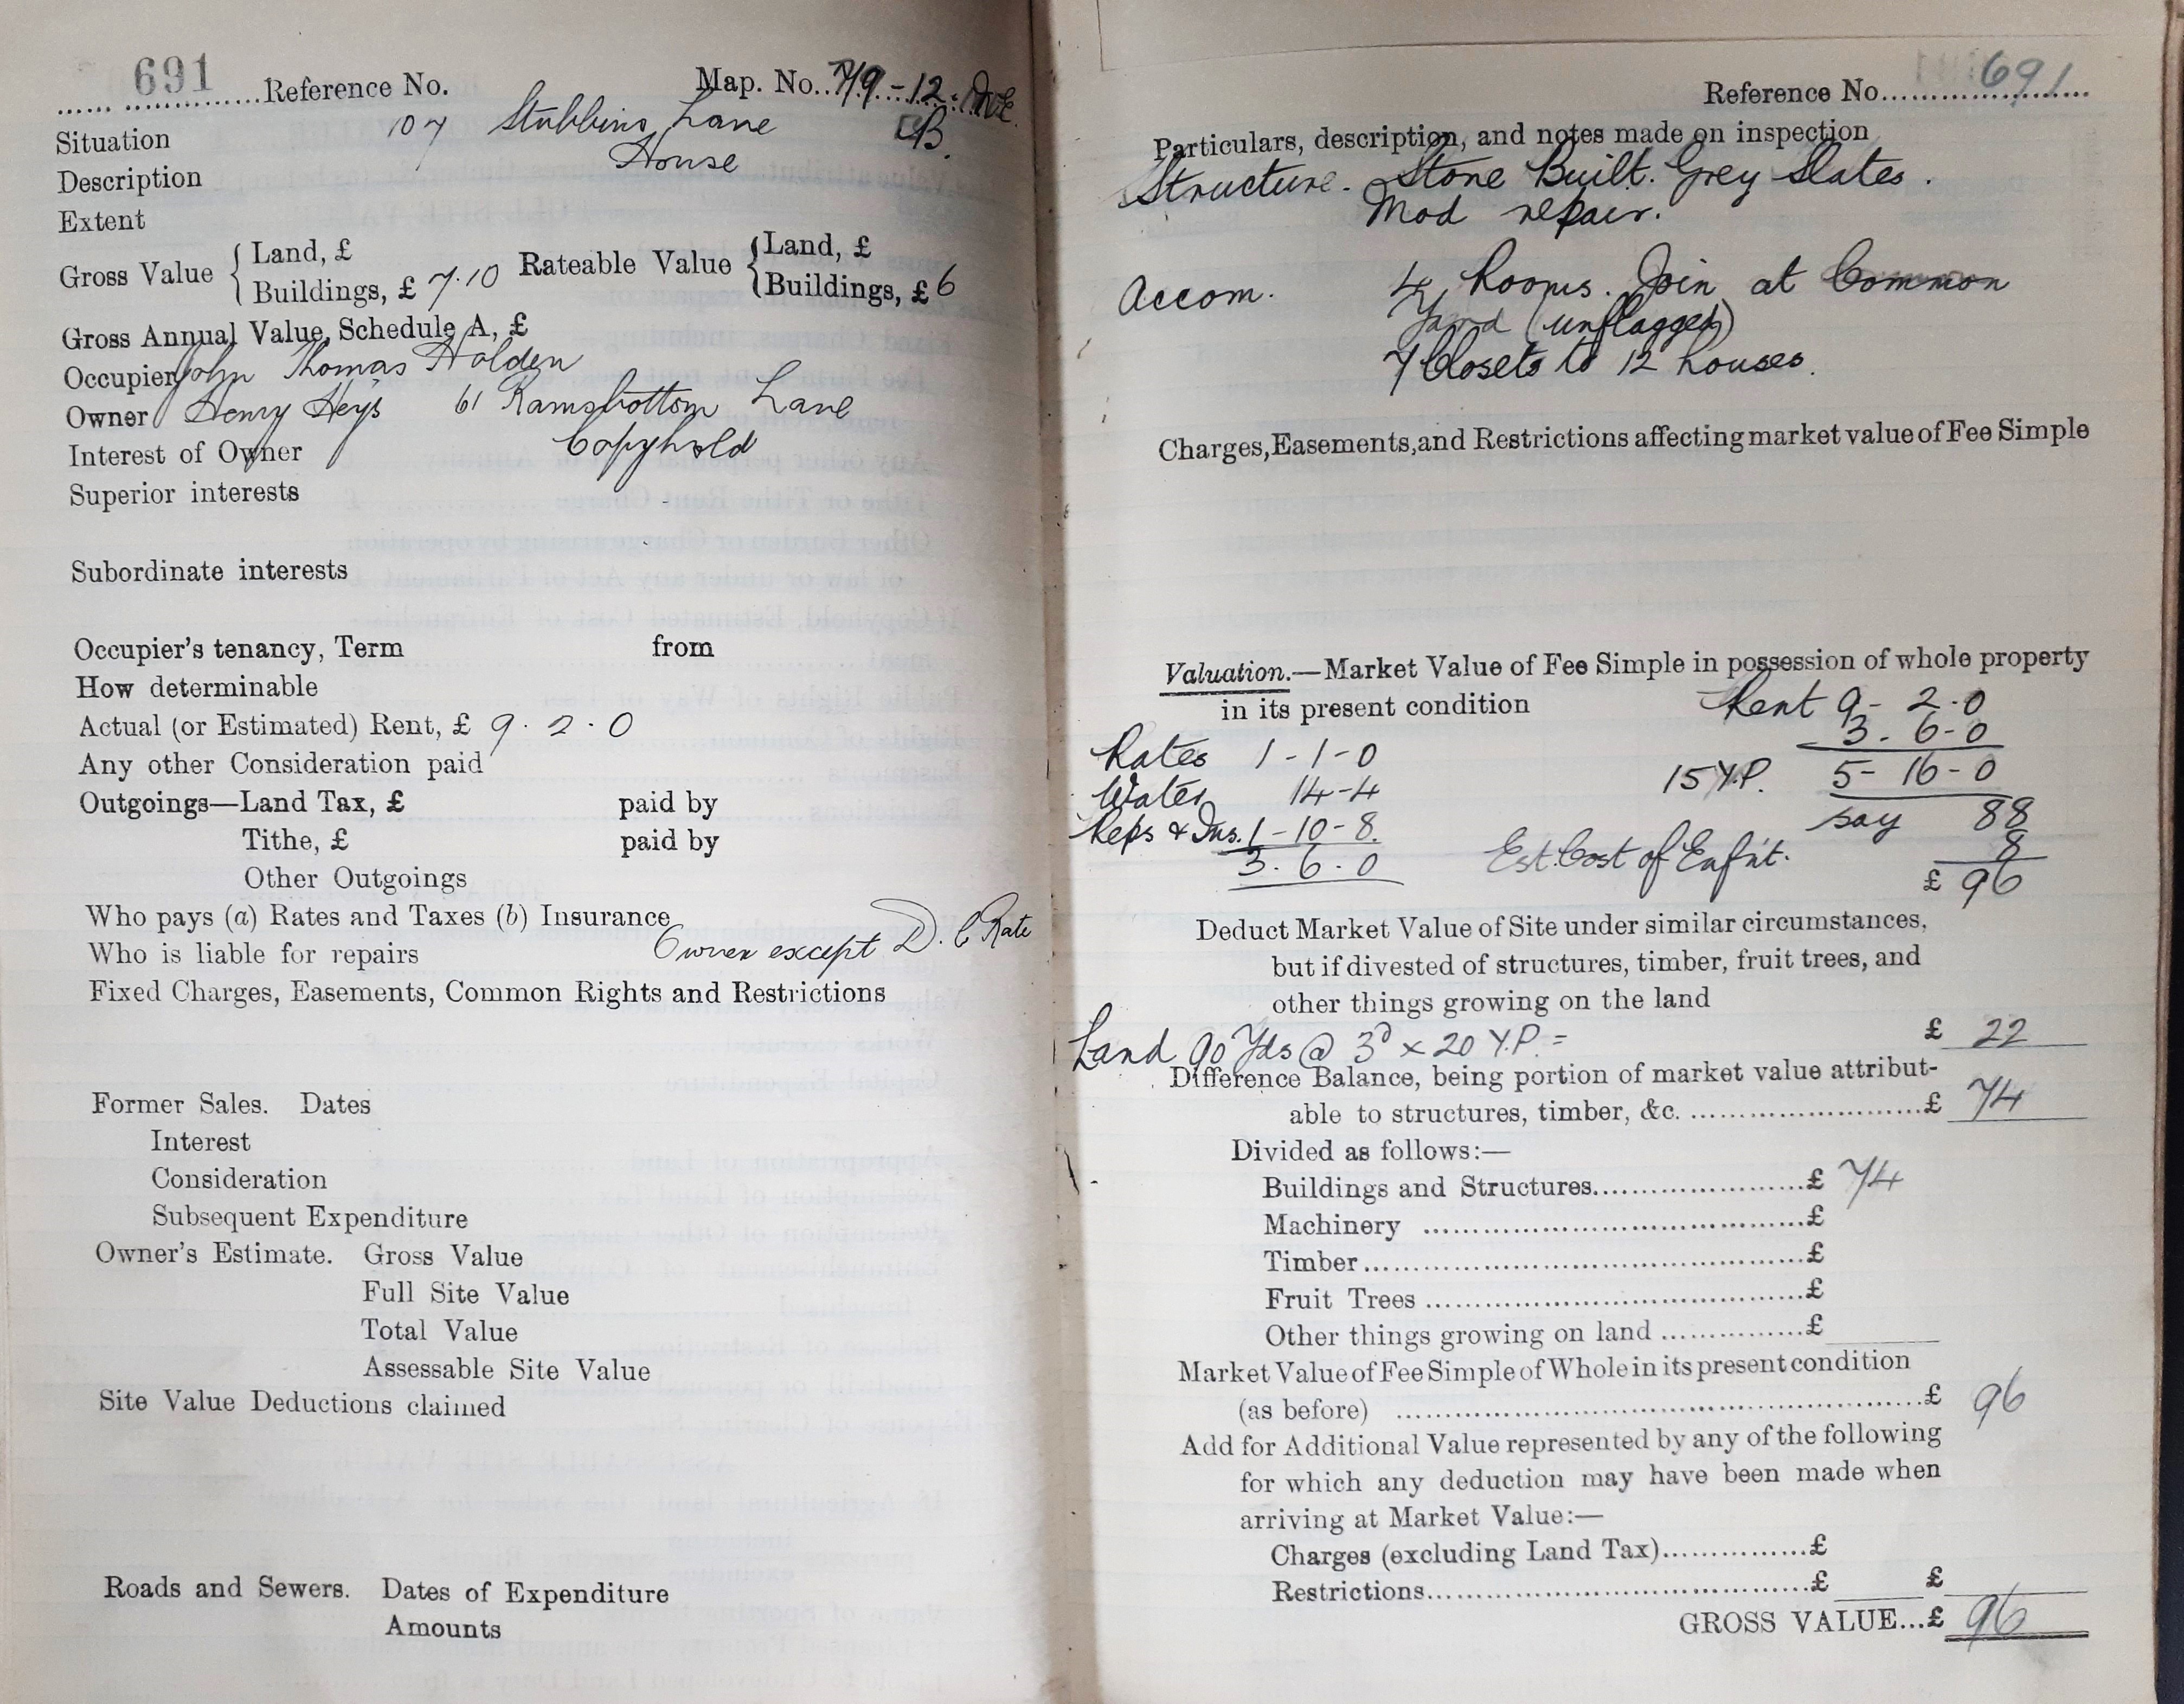 691 Reference No. Map. No. 79-12.
Situation 107 Stubbins Lane B.
Description House
Extent
Gross Value { Land, £ Rateable Value { Land, £
Buildings, £ 7.10 Buildings, £ 6
Gross Annual Value, Schedule A, £
Occupier John Thomas Holden
Owner Henry Heys 61 Ramsbottom Lane
Interest of Owner Copyhold
Superior interests
Subordinate interests
Occupier's tenancy, Term from
How determinable
Actual (or Estimated) Rent, £ 9.2.0
Any other Consideration paid
Outgoings—Land Tax, £ paid by
Tithe, £ paid by
Other Outgoings
Who pays (a) Rates and Taxes (b) Insurance
Who is liable for repairs Owner except D. C Rate
Fixed Charges, Easements, Common Rights and Restrictions
Former Sales. Dates
Interest
Consideration
Subsequent Expenditure
Owner's Estimate. Gross Value
Full Site Value
Total Value
Assessable Site Value
Site Value Deductions claimed
Roads and Sewers. Dates of Expenditure
Amounts
Reference No. 691
Particulars, description, and notes made on inspection
Structure. Stone Built. Grey Slates.
Mod repair.
Accom. 4 Rooms. Join at Common
Yard (unflagged)
7 Closets to 12 houses.
Charges, Easements, and Restrictions affecting market value of Fee Simple
Valuation.—Market Value of Fee Simple in possession of whole property
in its present condition Rent 9-2-0
3-6-0
Rates 1-1-0 15 Y.P. 5-16-0
Water 14-4 say 88
Reps & Ins. 1-10-8. Est. Cost of Enf'nt. 8
3.6.0 £ 96
Deduct Market Value of Site under similar circumstances,
but if divested of structures, timber, fruit trees, and
other things growing on the land
Land 90 Yds @ 3d x 20 Y.P. = £ 22
Difference Balance, being portion of market value attribut-
able to structures, timber, &c. £ 74
Divided as follows:—
Buildings and Structures £ 74
Machinery £
Timber £
Fruit Trees £
Other things growing on land £
Market Value of Fee Simple of Whole in its present condition
(as before) £ 96
Add for Additional Value represented by any of the following
for which any deduction may have been made when
arriving at Market Value:—
Charges (excluding Land Tax) £
Restrictions £ £
GROSS VALUE...£ 96